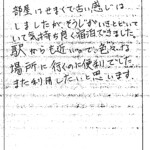 部屋はせまくて古い感じは
しましたが、そうじがいきとどいてい
いて気持ち良く宿泊できました。
駅からも近いので、色々な
場所に行くのに便利でした。
また利用したいと思います。